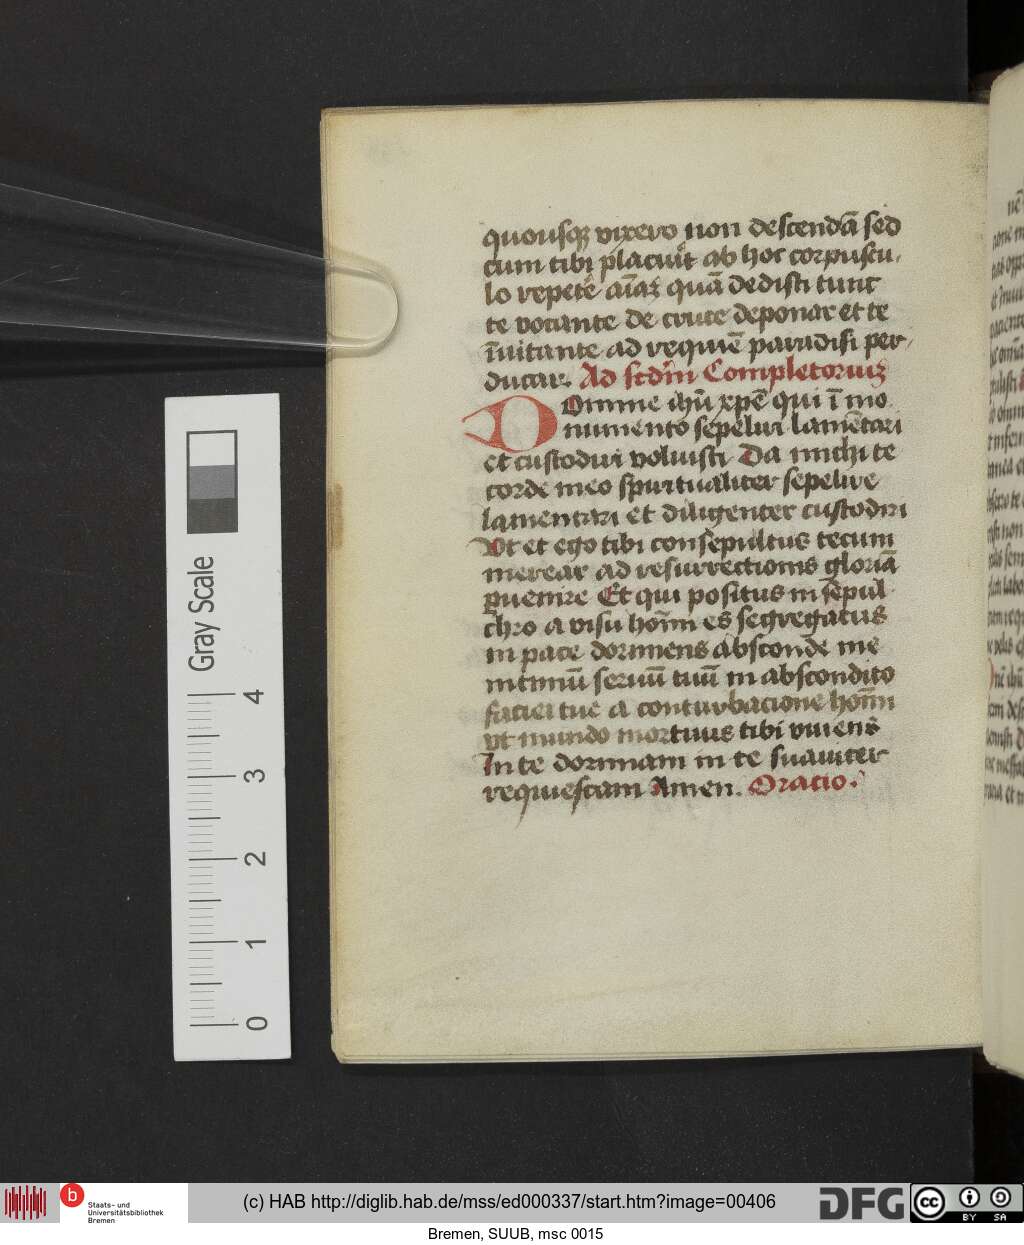 quousqꝫ vixero non descendā sed
cum tibi placuīt ab hoc corpuscu-
lo repetē aīaꝫ quā dedisti tunc
te vocante de cruce deponar et te
īuitante ad requiē paradisi per-
ducar. Ad
Completoriuꝫ
Domine ihū xpē qui ī mo
numento sepeliri lamētari
et custodiri voluisti Da michi te
corde meo spiritualiter sepelire
lamentari et diligenter custodiri
Vt et ego tibi consepultus tecum
merear ad resurrectionis gloriā
puenire Et qui positus in sepul
chro a visu hoīm es segregatus
in pace dormiens absconde me
intimū seruū tuū in abscondito
faciei tue a conturbacione hoīm
vt mundo mortuus tibi viuens
In te dormiam in te suauiter
requiescam Amen. Oracio.
Gray Scale
4
3
2
1
0
b Staats- und
Universitätsbibliothek
Bremen
(c) HAB http://diglib.hab.de/mss/ed000337/start.htm?image=00406
DFG
cc BY SA
Bremen, SUUB, msc 0015